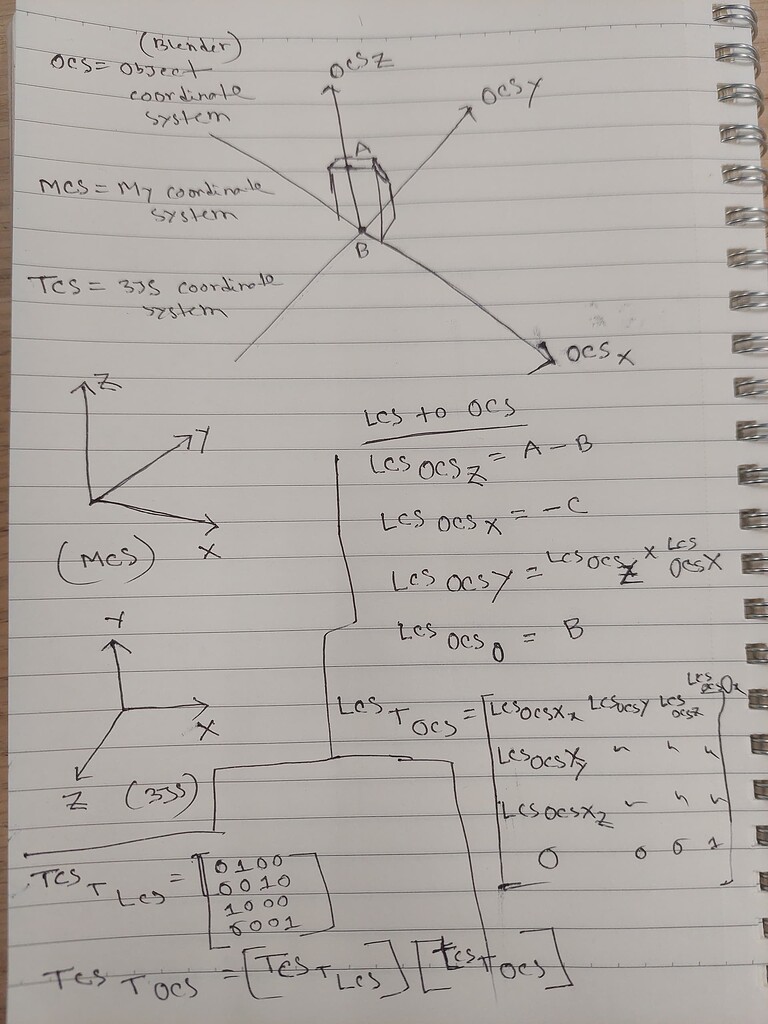 (Blender)
OCS = Object
coordinate
system
MCS = My coordinate
system
TCS = 3JS coordinate
system
OCSZ
OCSY
A
B
OCSX
Z
Y
X
(MCS)
Y
X
Z (3JS)
LCS to OCS
LCS OCSZ = A - B
LCS OCSX = -C
LCS OCSY = LCS OCSZ × LCS OCSX
LCS OCS0 = B
LCS T OCS = [LCSOCSXx LCSOCSY LCSOCSZ LCSOCSOx
LCSOCSXy " " "
LCSOCSXZ " " "
0 0 0 1]
TCS T LCS = [0 1 0 0
0 0 1 0
1 0 0 0
0 0 0 1]
TCS T OCS = [TCS T LCS] [LCS T OCS]